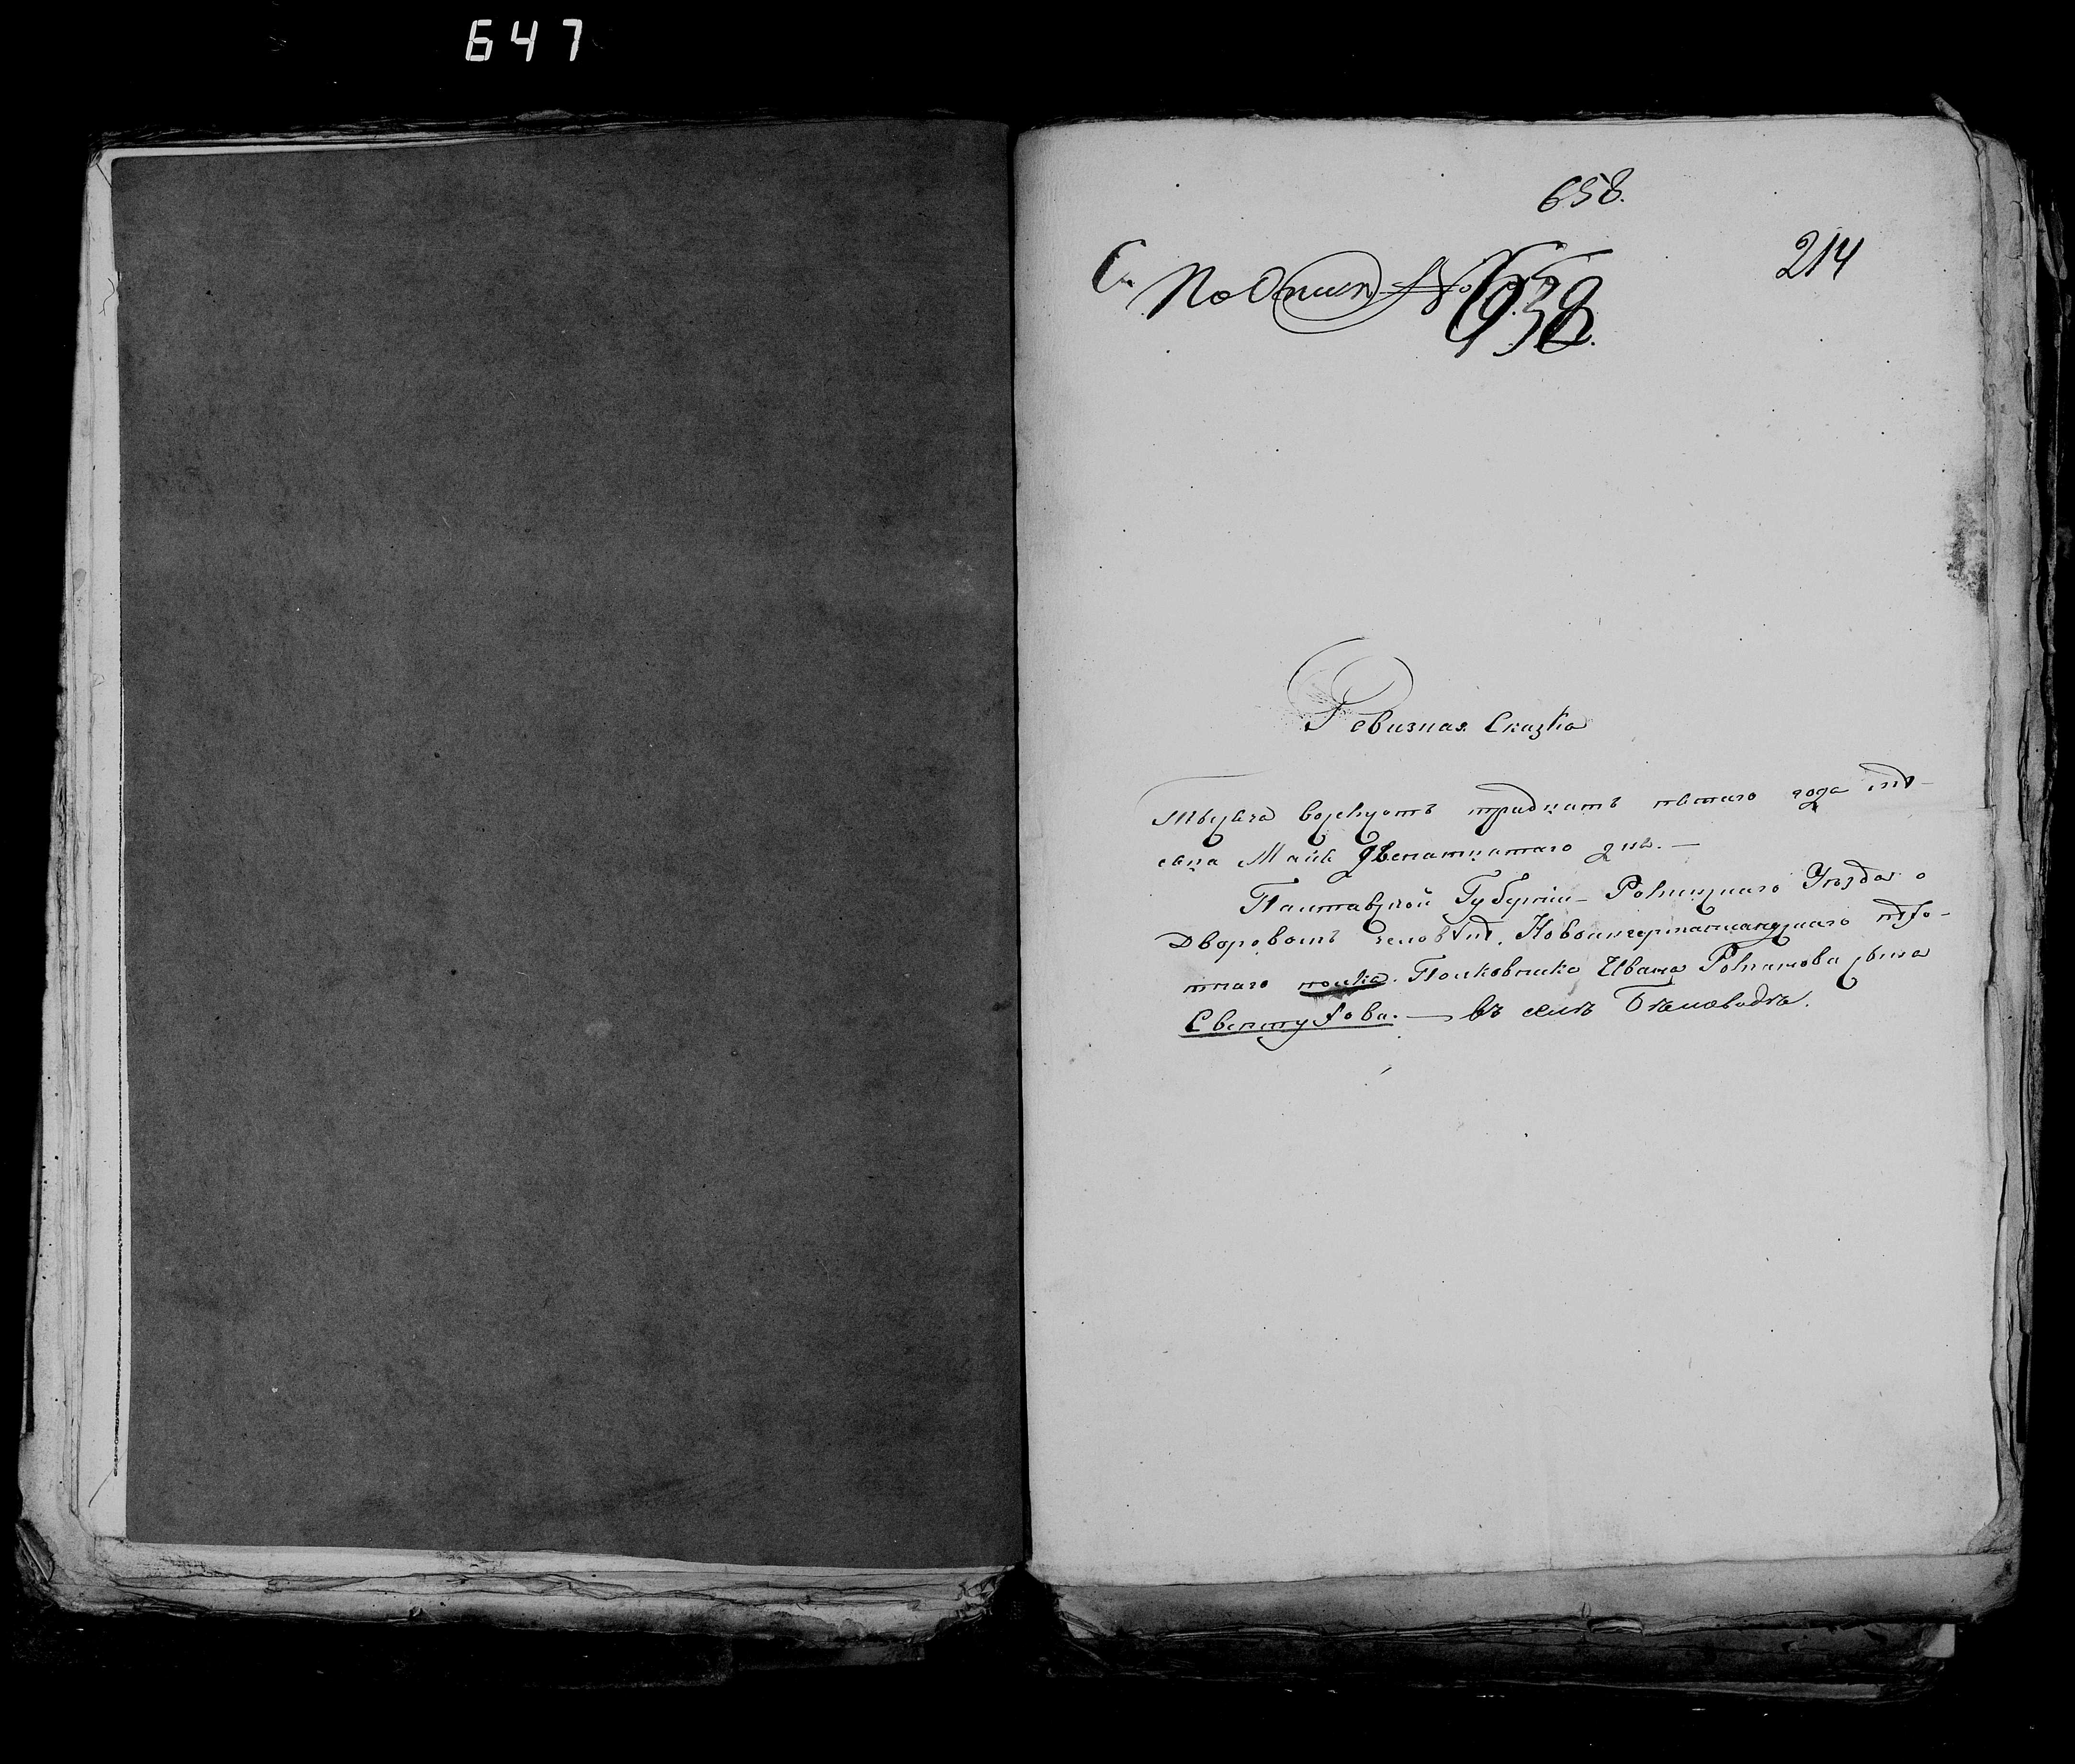 647
658.
214
По Описи № 658.
Ревизная Сказка
Тысяча восемсотъ тридцать пятаго года мѣ-
сяца Маия двенатцатаго дня. —
Полтавской Губернии Роменскаго Уезда о
Дворовомъ человѣке, Новоингерманландскаго пѣхо-
тнаго полка. Полковника Ивана Романова сына
Свентухова. — въ селѣ Беловодке.